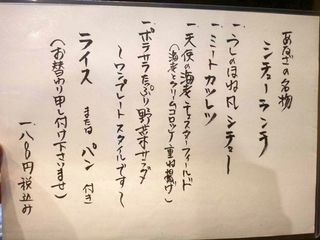 あなざの名物
シチューランチ
一.うしのほね凡シチュー
一.ミートカツレツ
一.天使の海老チェスターフィールド
(海老とクリームコロッケ重ね揚げ)
一.ポラサラたっぷり野菜サラダ
〜ワンプレートスタイルです〜
ライス または パン 付き
(お替わり申し付け下さいませ)
一八〇〇円税込み